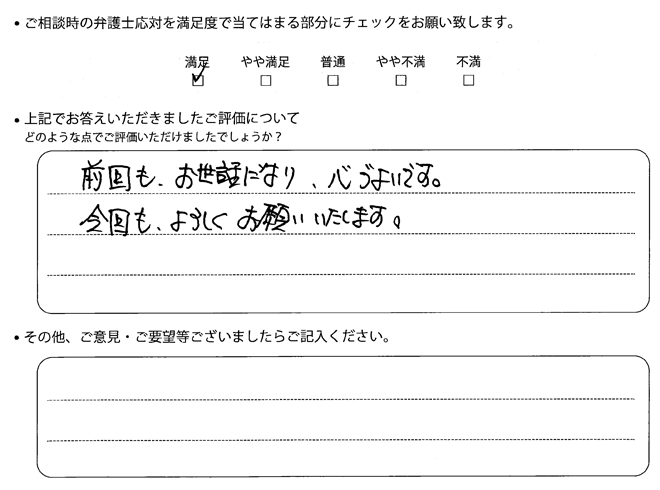 ・ご相談時の弁護士応対を満足度で当てはまる部分にチェックをお願い致します。
満足 やや満足 普通 やや不満 不満
・上記でお答えいただきましたご評価について
どのような点でご評価いただけましたでしょうか？
前回も、お世話になり、心づよいです。
今回も、よろしくお願いいたします。
・その他、ご意見・ご要望等ございましたらご記入ください。